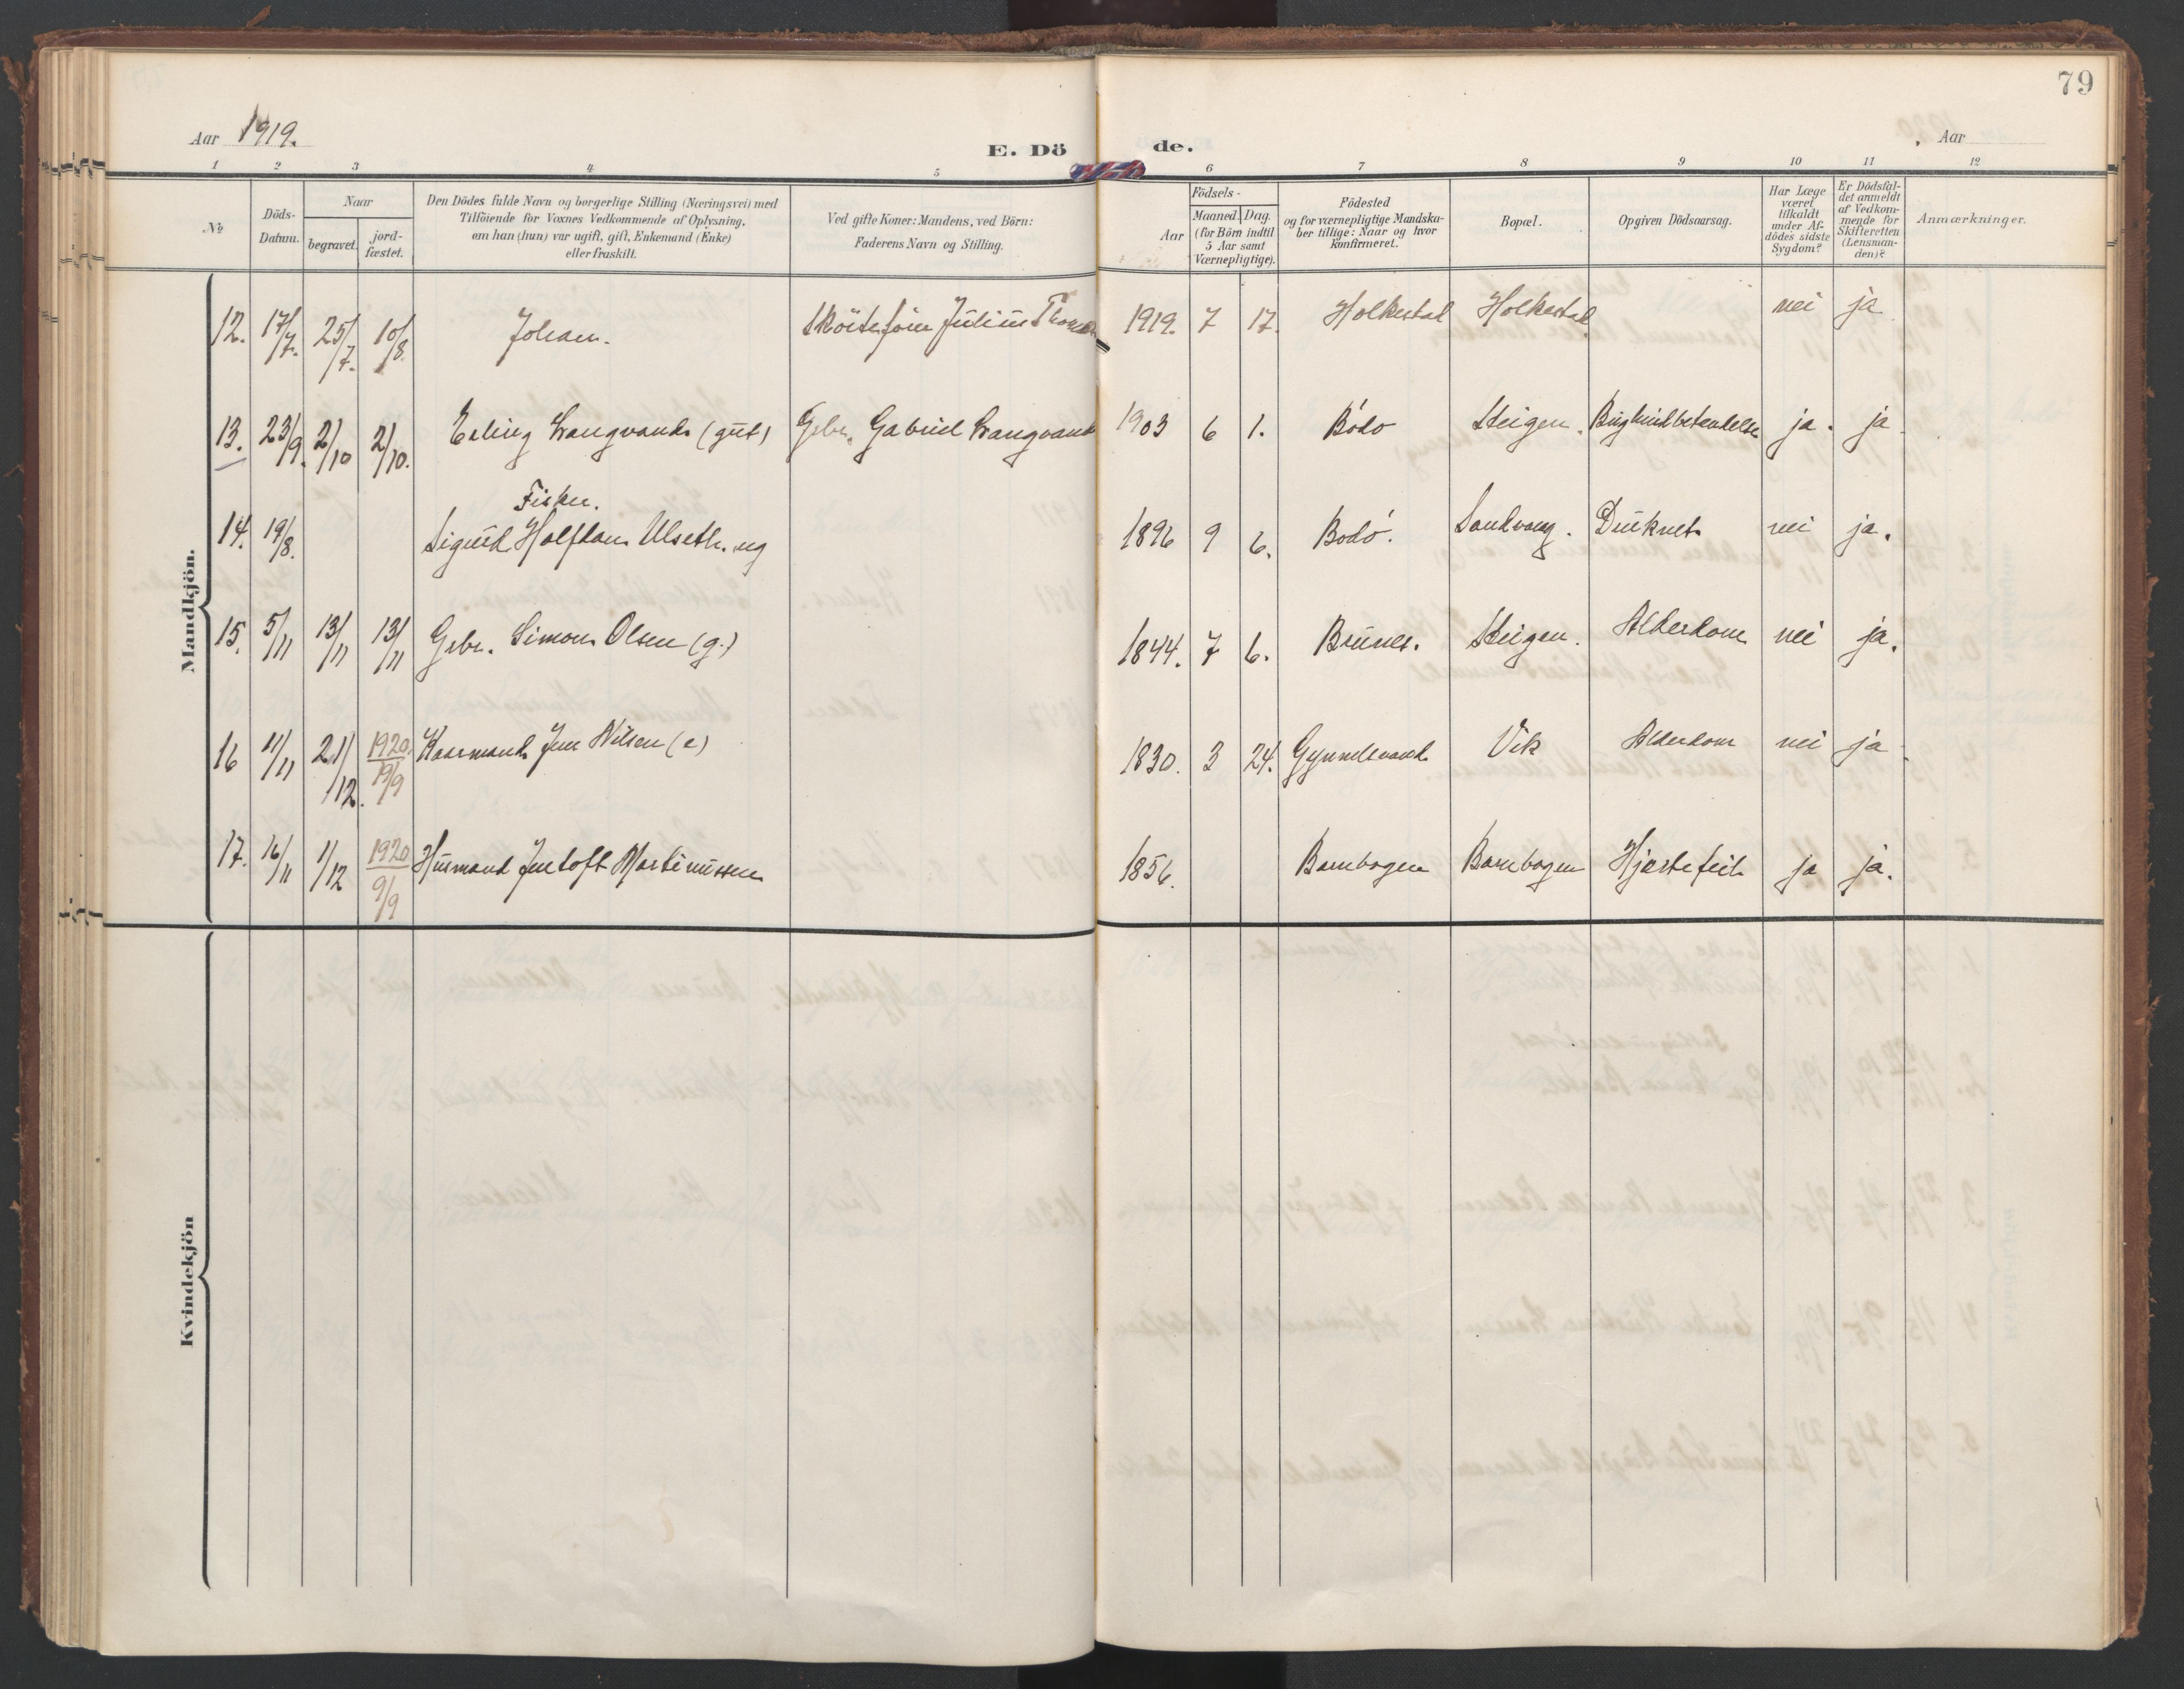 79
Aar 1919.
E. Döde.
Aar
1 2 3 4 5 6 7 8 9 10 11 12
№
Döds-Datum.
Naar
begravet.
jord-fæstet.
Den Dödes fulde Navn og borgerlige Stilling (Næringsvei) med
Tilföiende for Voxnes Vedkommende af Oplysning,
om han (hun) var ugift, gift, Enkemand (Enke)
eller fraskilt.
Ved gifte Koner: Mandens, ved Börn:
Faderens Navn og Stilling.
Födsels-
Aar
Maaned. Dag.
(for Börn indtil
5 Aar samt
Værnepligtige).
Födested
og for værnepligtige Mandska-
ber tillige: Naar og hvor
Konfirmeret.
Bopæl.
Opgiven Dödsaarsag.
Har Læge
været
tilkaldt
under Af-
dödes sidste
Sygdom?
Er Dödsfal-
det anmeldt
af Vedkom-
mende for
Skifteretten
(Lensman-
den)?
Anmærkninger.
Mandkjön.
12. 17/7. 25/7. 10/8. Johan. Julius 1919. 7 17. Holkestad Holkestad nei ja
13. 23/9. 2/10 2/10. Erling Langvand (gut) Gbr. Gabriel Langvand 1903 6 1. Bodo Steigen. ja. ja
Fisker.
14. 19/8. Sigurd Halfdan Ulseth. ug 1896 9 6. Bodö. Druknet nei ja.
15. 5/11 13/11 13/11 Gbr. Simon Olsen (g.) 1844. 7 6. Brunes. Steigen. Alderdom nei ja.
16 11/11 21/12. 1920. 19/9 Kaarmand Jens Nilsen (e) 1830. 3 24. Vik Alderdom nei ja
17. 16/11 1/12 1920 9/9 Husmand Jentoft Martinussen 1856. Barnbogen Barnbogen Hjertefeil ja ja.
Kvindekjön